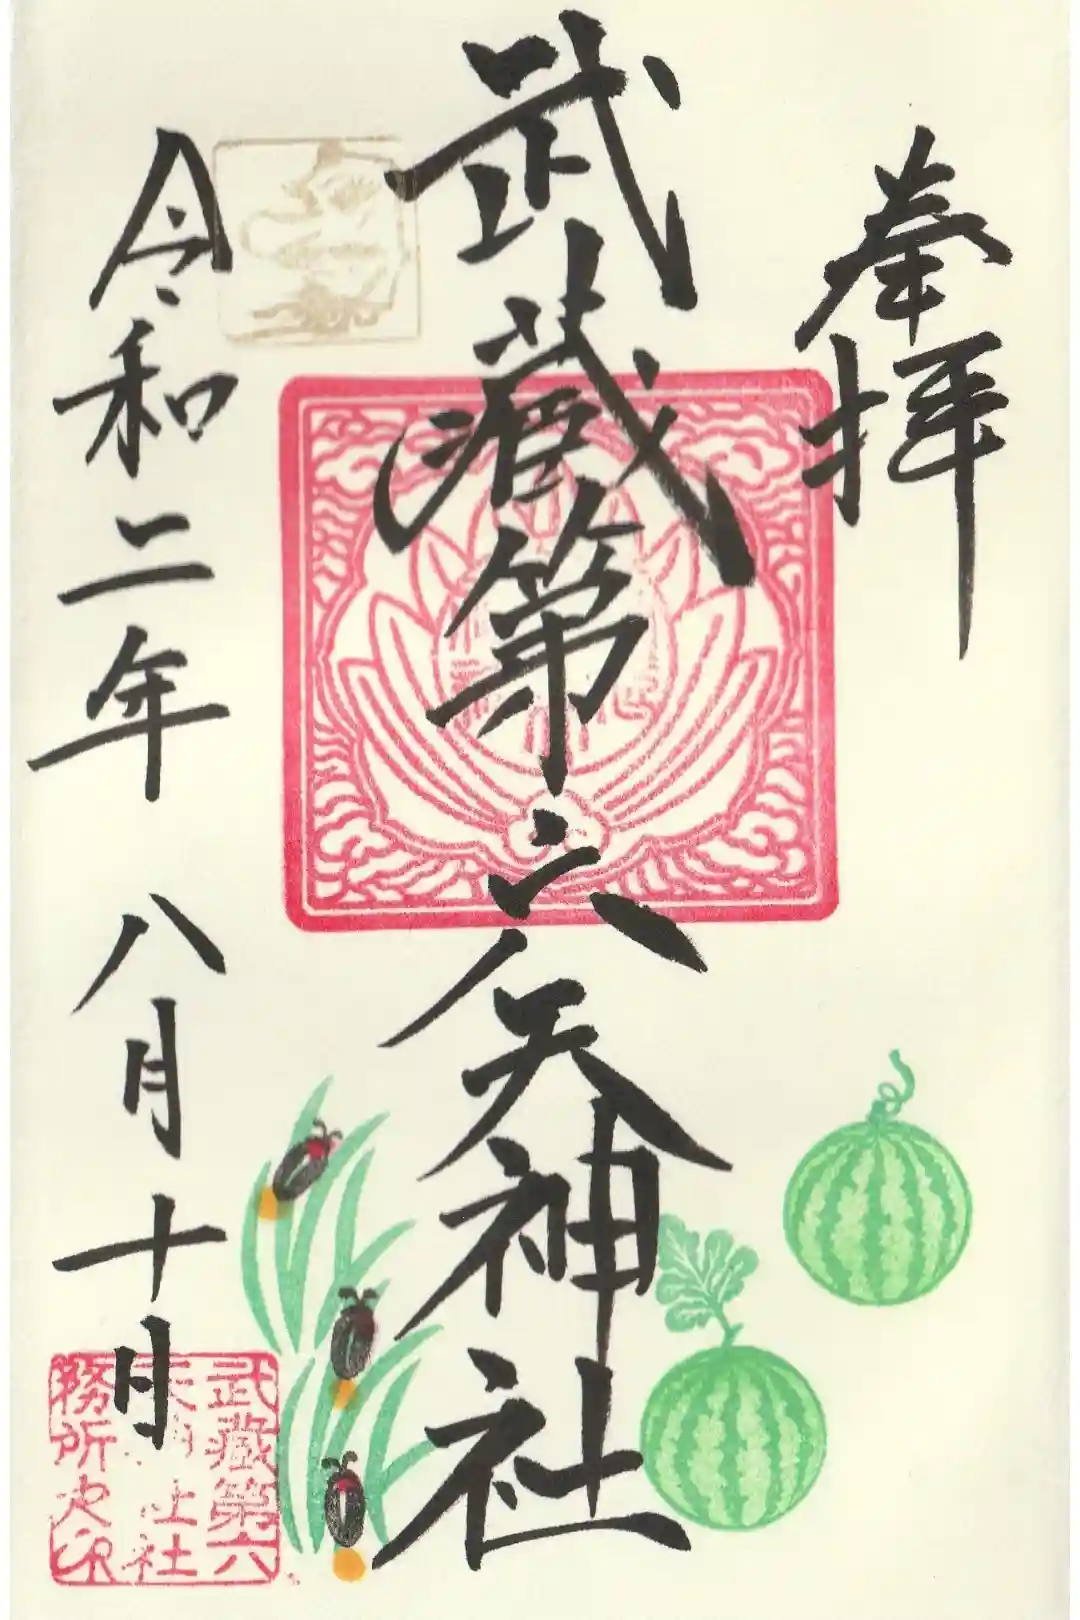 奉拝
武蔵第六天神社
令和二年 八月十日
武蔵第六
天神社社
務所之印